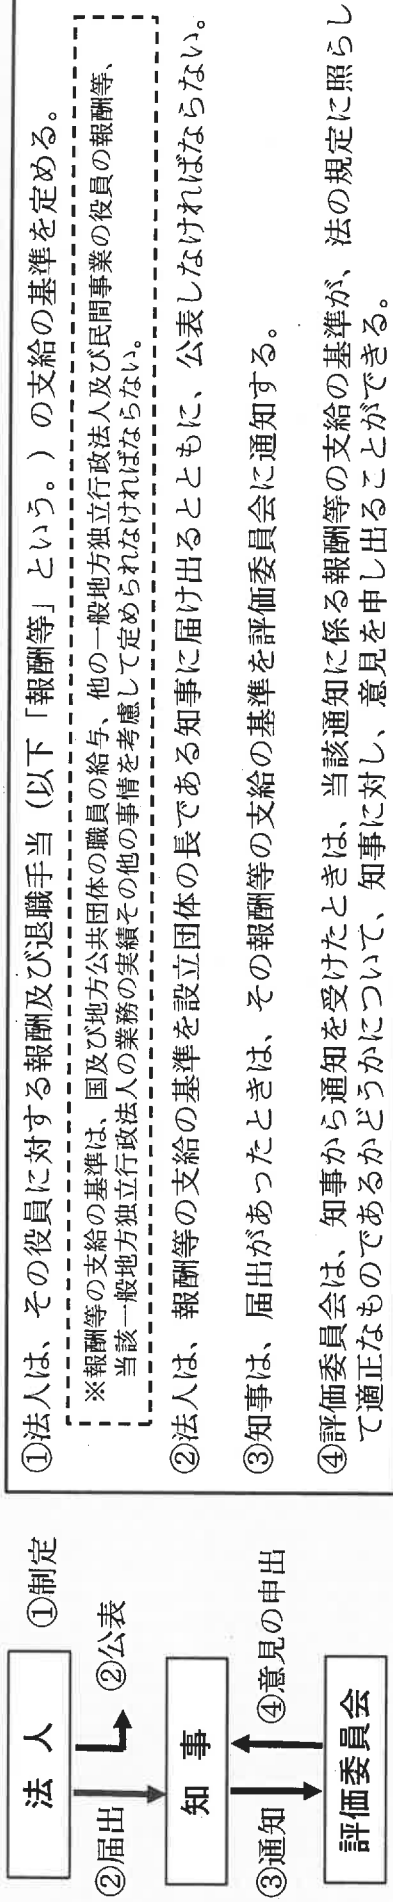 法人
①制定
②届出
②公表
知事
③通知
④意見の申出
評価委員会
①法人は、その役員に対する報酬及び退職手当（以下「報酬等」という。）の支給の基準を定める。
※報酬等の支給の基準は、国及び地方公共団体の職員の給与、他の一般地方独立行政法人及び民間事業の役員の報酬等、
当該一般地方独立行政法人の業務の実績その他の事情を考慮して定められなければならない。
②法人は、報酬等の支給の基準を設立団体の長である知事に届け出るとともに、公表しなければならない。
③知事は、届出があったときは、その報酬等の支給の基準を評価委員会に通知する。
④評価委員会は、知事から通知を受けたときは、当該通知に係る報酬等の支給の基準が、法の規定に照らし
て適正なものであるかどうかについて、知事に対し、意見を申し出ることができる。